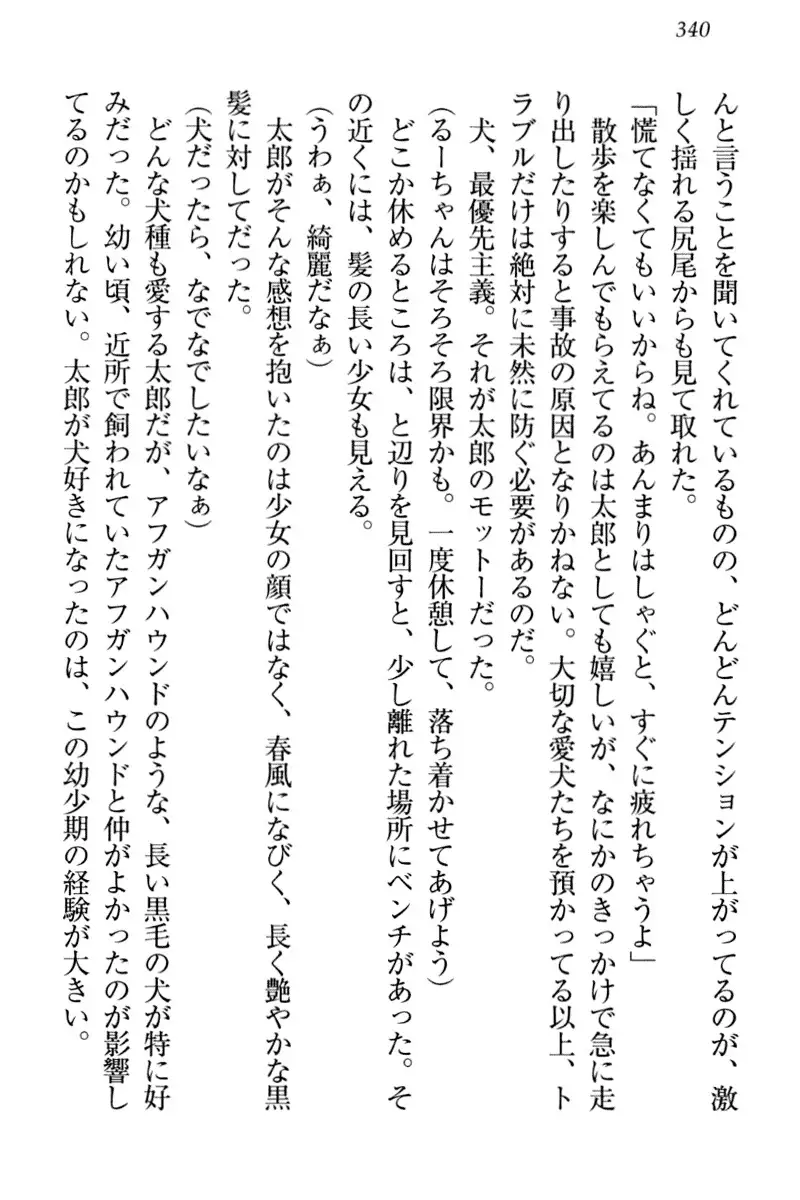 340
んと言うことを聞いてくれているものの、どんどんテンションが上がってるのが、激
しく揺れる尻尾からも見て取れた。
「慌てなくてもいいからね。あんまりはしゃぐと、すぐに疲れちゃうよ」
　散歩を楽しんでもらえてるのは太郎としても嬉しいが、なにかのきっかけで急に走
り出したりすると事故の原因となりかねない。大切な愛犬たちを預かってる以上、ト
ラブルだけは絶対に未然に防ぐ必要があるのだ。
　犬、最優先主義。それが太郎のモットーだった。
（るーちゃんはそろそろ限界かも。一度休憩して、落ち着かせてあげよう）
　どこか休めるところは、と辺りを見回すと、少し離れた場所にベンチがあった。そ
の近くには、髪の長い少女も見える。
（うわぁ、綺麗だなぁ）
　太郎がそんな感想を抱いたのは少女の顔ではなく、春風になびく、長く艶やかな黒
髪に対してだった。
（犬だったら、なでなでしたいなぁ）
　どんな犬種も愛する太郎だが、アフガンハウンドのような、長い黒毛の犬が特に好
みだった。幼い頃、近所で飼われていたアフガンハウンドと仲がよかったのが影響し
てるのかもしれない。太郎が犬好きになったのは、この幼少期の経験が大きい。